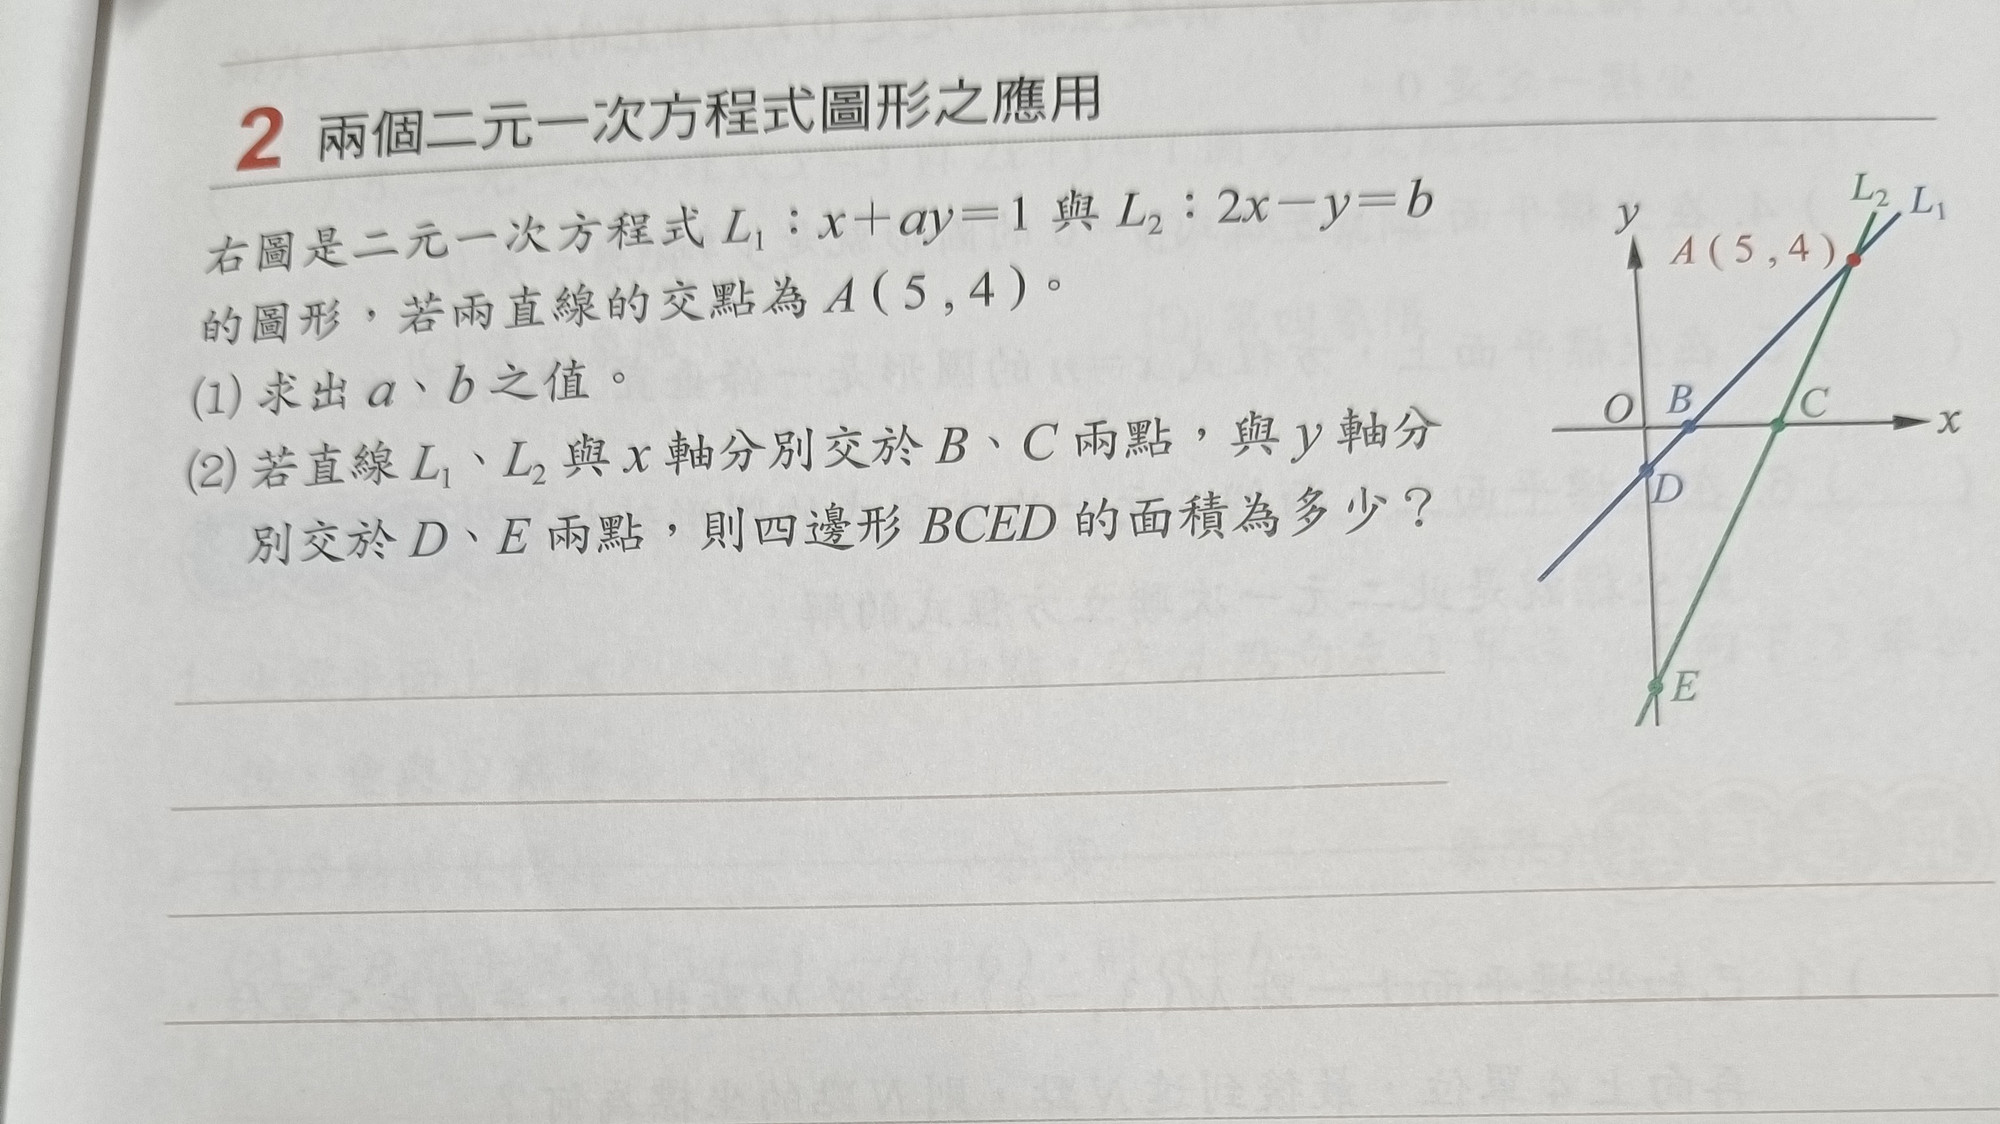 2 兩個二元一次方程式圖形之應用
右圖是二元一次方程式 L₁：x＋ay＝1 與 L₂：2x－y＝b
的圖形，若兩直線的交點為 A(5,4)。
(1) 求出 a、b 之值。
(2) 若直線 L₁、L₂ 與 x 軸分別交於 B、C 兩點，與 y 軸分
別交於 D、E 兩點，則四邊形 BCED 的面積為多少？
L₂ L₁
y
A(5,4)
O B C x
D
E